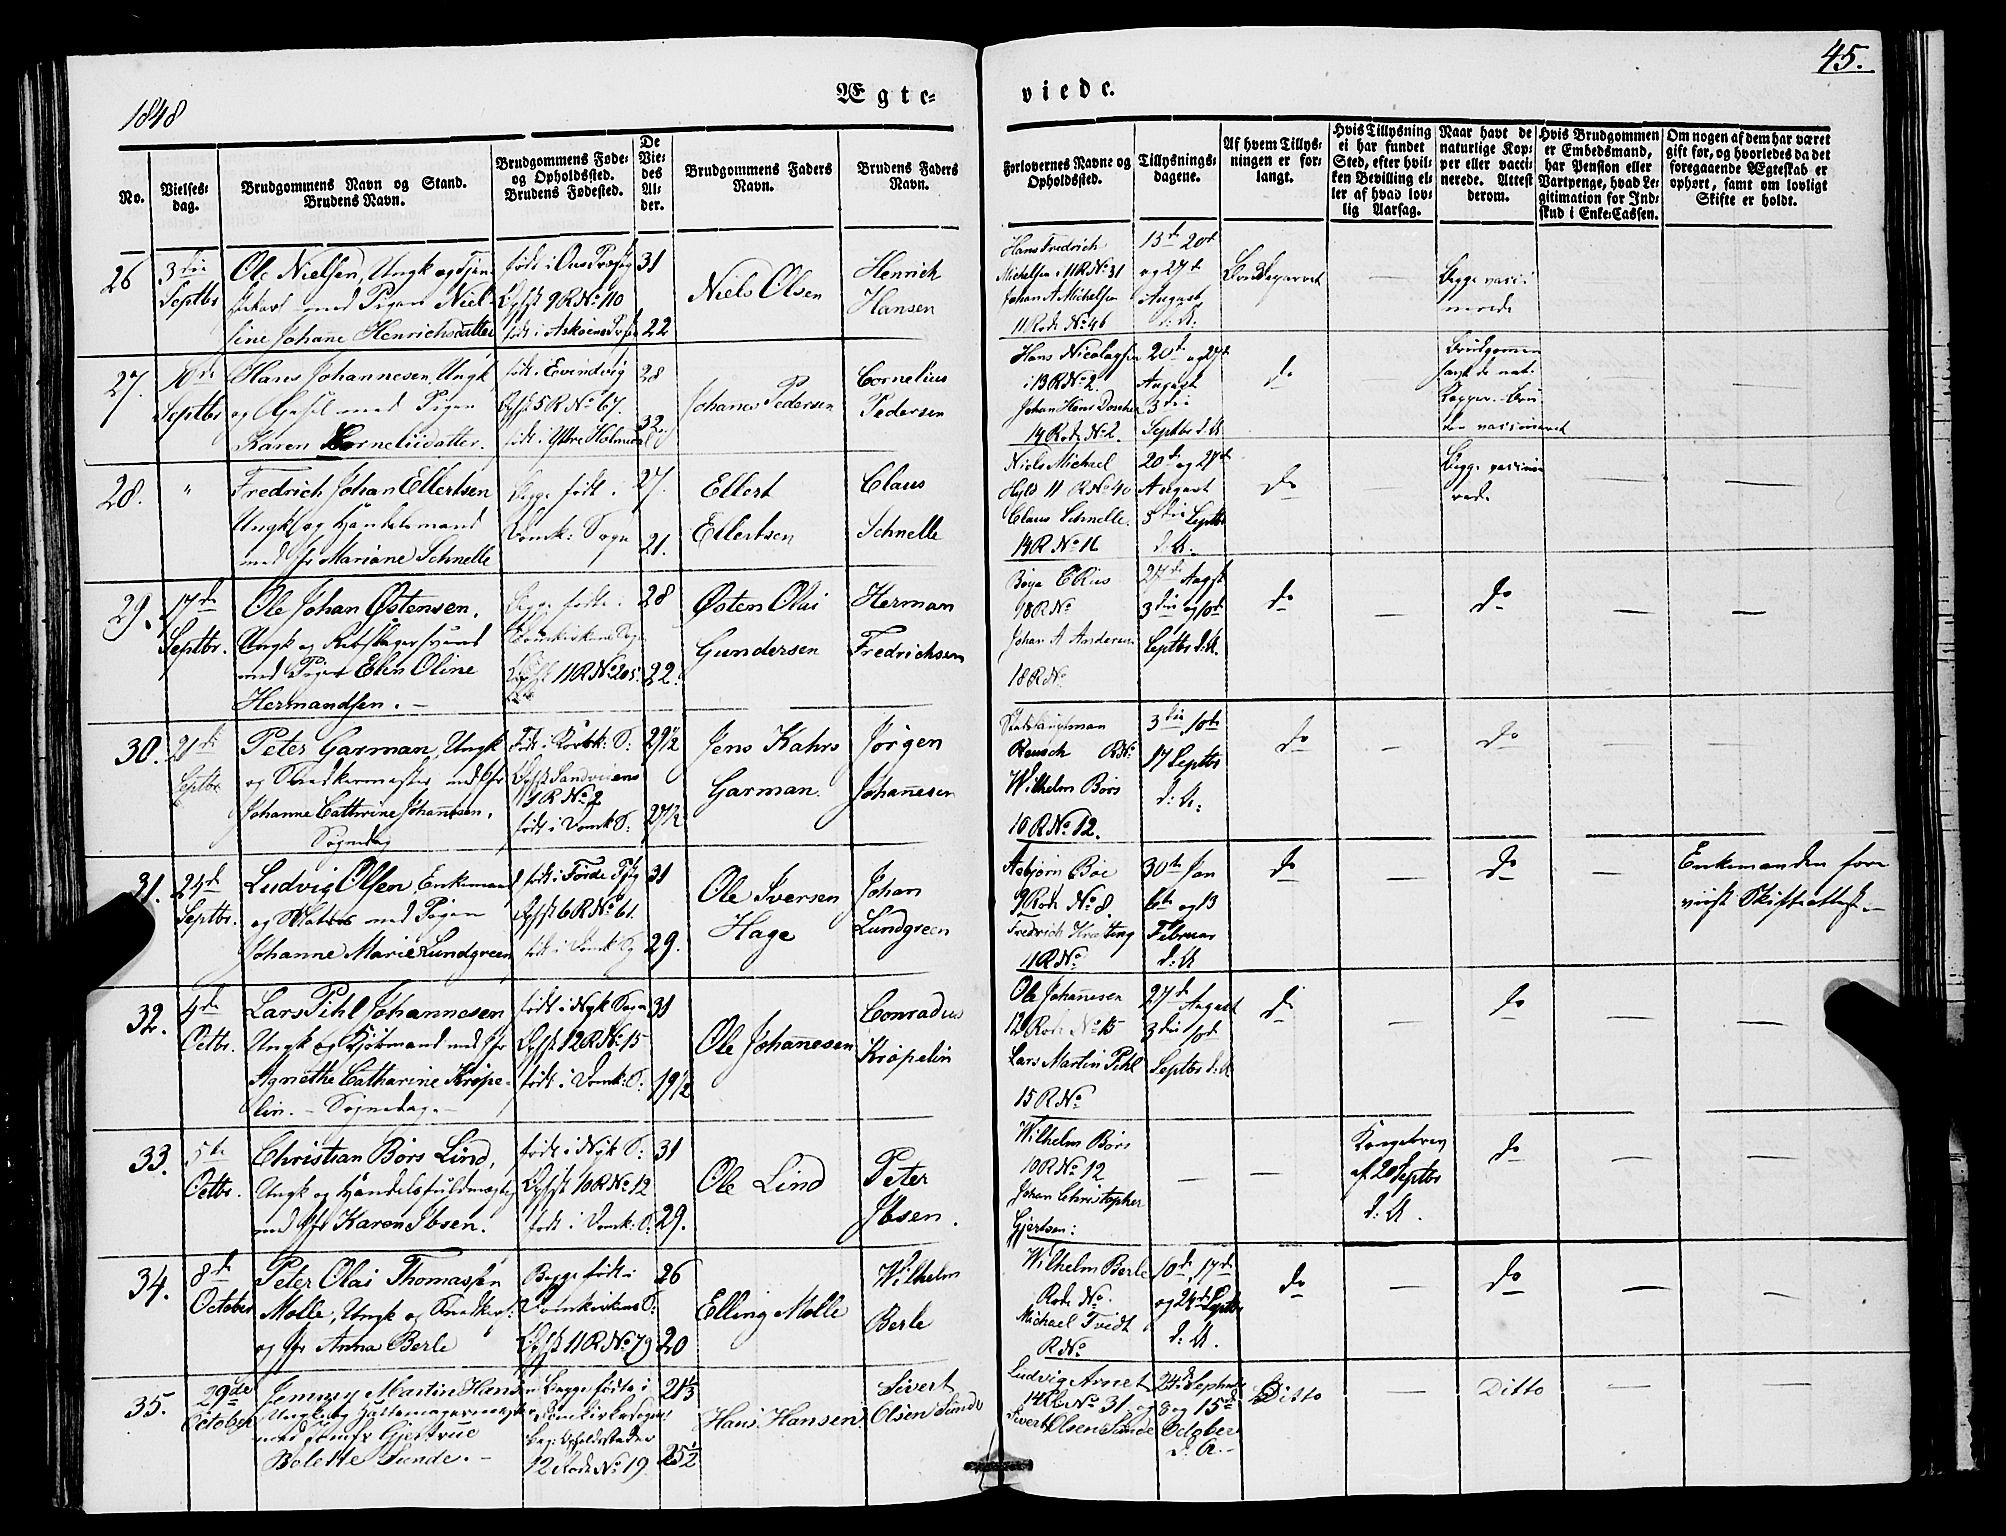 45.
1848
Ægte-
viede.
No.
Vielses-
dag.
Brudgommens Navn og Stand.
Brudens Navn.
Brudgommens Føde-
og Opholdssted.
Brudens Fødested.
De
Vie-
des
Al-
der.
Brudgommens Faders
Navn.
Brudens Faders
Navn.
Forlovernes Navne og
Opholdssted.
Tillysnings-
dagene.
Af hvem Tillys-
ningen er for-
langt.
Hvis Tillysning
ei har fundet
Sted, efter hvil-
ken Bevilling el-
ler af hvad lov-
lig Aarsag.
Naar havt de
naturlige Kop-
per eller vacci-
nerede. Attest
derom.
Hvis Brudgommen
er Embedsmand,
har Pension eller
Vartpenge, hvad Le-
gitimation for Ind-
skud i Enke-Cassen.
Om nogen af dem har været
gift før, og hvorledes da det
foregaaende Ægteskab er
ophørt, samt om lovligt
Skifte er holdt.
26
3die
Septbr
Ole Nielsen, Ungk og
med Pigen Niel-
sine Johane Henrichsdatter
født i
9 R No 110
født i Askøens
31
22
Niels Olsen
Henrich
Hansen
Hans Fredrich
Michelsen i 11 R No 31
Johan A Michelsen
11 Rode No 46
13de 20de
og 27de
August
d: A:
Brudeparret
—
Begge vacci-
nerede
—
—
27.
10de
Septbr
Hans Johannesen, Ungk
og med Pigen
Karen Corneliidatter.
født i Evindvig
5 R No 67.
født i Ytre Holmedal
28
32
Johanes Pedersen
Cornelius
Pedersen
Hans Nicolaysen
i 13 R No 2.
Johan Henr
14 Rode No 2.
20de og 27de
August
3die
Septbr d. A
do
—
Brudgommen
havt de nat:
Kopper. Bru-
den vaccineret
—
—
28.
"
Fredrich Johan Ellertsen
Ungk og Handelsmand
med Jfr Mariane Schnelle
Begge født i
Domk: Sogn
27.
21.
Ellert
Ellertsen
Claus
Schnelle
Niels Michael
Hyld 11 R No 40
Claus Schnelle.
14 R No 16
20de og 27de
August
3die Septbr
d. A.
do
—
Begge vaccine-
rede
—
—
29.
17de
Septbr.
Ole Johan Østensen.
Ungk og Rebslagersvend
med Pigen Elen Oline
Hermandsen. —
Begge fødte i
11 R No 205.
28
22.
Østen Olai
Gundersen
Herman
Fredrichsen
18 R No
Johan A Andersen
18 R No
27de Augst
3die og 10de
Septbr d. A.
do
—
do
—
—
30.
21de
Septbr.
Peter Garman, Ungk
og Snedkermester med Jfr
Johanne Cathrine Johannesen.
Sognedag
Født i Korsk: S:
Sandvigens
1 R No 2
født i Domk: S:
29½
27½
Jens Kahrs
Garman.
Jørgen
Johanesen
Reusch R No
Wilhelm Børs
10 R No 12.
3die, 10de
17 Septbr
d: A:
do
—
do
—
—
31.
24de
Septbr.
Ludvig Olsen, Enkemand
og med Pigen
Johanne Marie Lundgreen
født i Førde
6 R No 61.
født i Domk: Sg
31
29.
Ole Iversen
Hage
Johan
Lundgreen
Asbjørn Boe
9 Rode No 8.
Fredrich
11 R No
30te Jan
6te og 13
Februar
d: A
do
—
do
—
Enkemanden fore-
viist Skifteattest. —
32.
4de
Octbr.
Lars Pihl Johannesen
Ungk og Kjøbmand med Jfr
Agnethe Catharine Krøpe-
lin. — Sognedag. —
født i Nyk Sogn
12 R No 15
født i Domk: S:
31
19½
Ole Johanesen
Conradus
Krøpelin
Ole Johanesen
12 Rode No 15
Lars Martin Pihl
15 R No
27de August
3die 10de
Septbr d: A
do
—
do
—
—
33.
5te
Octbr.
Christian Børs Lind,
Ungk og Handelsfuldmægtig
med Jfr Karen Ibsen.
født i Nyk S:
10 R No 12
født i Domk: S:
31
29.
Ole Lind
Peter
Ibsen.
Wilhelm Børs
10 R No 12
Johan Christopher
Gjertsen:
—
—
Kongebrev
af 20 Septbr
d: A.
do
—
—
34.
8de
October
Peter Olai Thomassen
Molle, Ungk og
og Jfr Anna Berle
Begge født i
Domkirkens S:
11 R No 79
26
20
Elling Molle
Wilhelm
Berle
Wilhelm Berle
Rode No
Michael Tvedt
R No
10de, 17de
og 24de Septbr
d: A.
do
—
do
—
—
35.
29de
October
Jenney Martin Hansen
Ungk og Hattemagermester
med Jomfr Gjertrue
Bolette Sunde. —
Begge fødte i
Domkirkesogn,
12 Rode No 19.
21⅓
25½
Hans Hansen
Sivert
Olsen Sunde
Ludvig
14 R No 31 og
Sivert Olsen Sunde
24de Septembr
8 og 15de
October
d. A. —
Ditto
—
Ditto
—
—